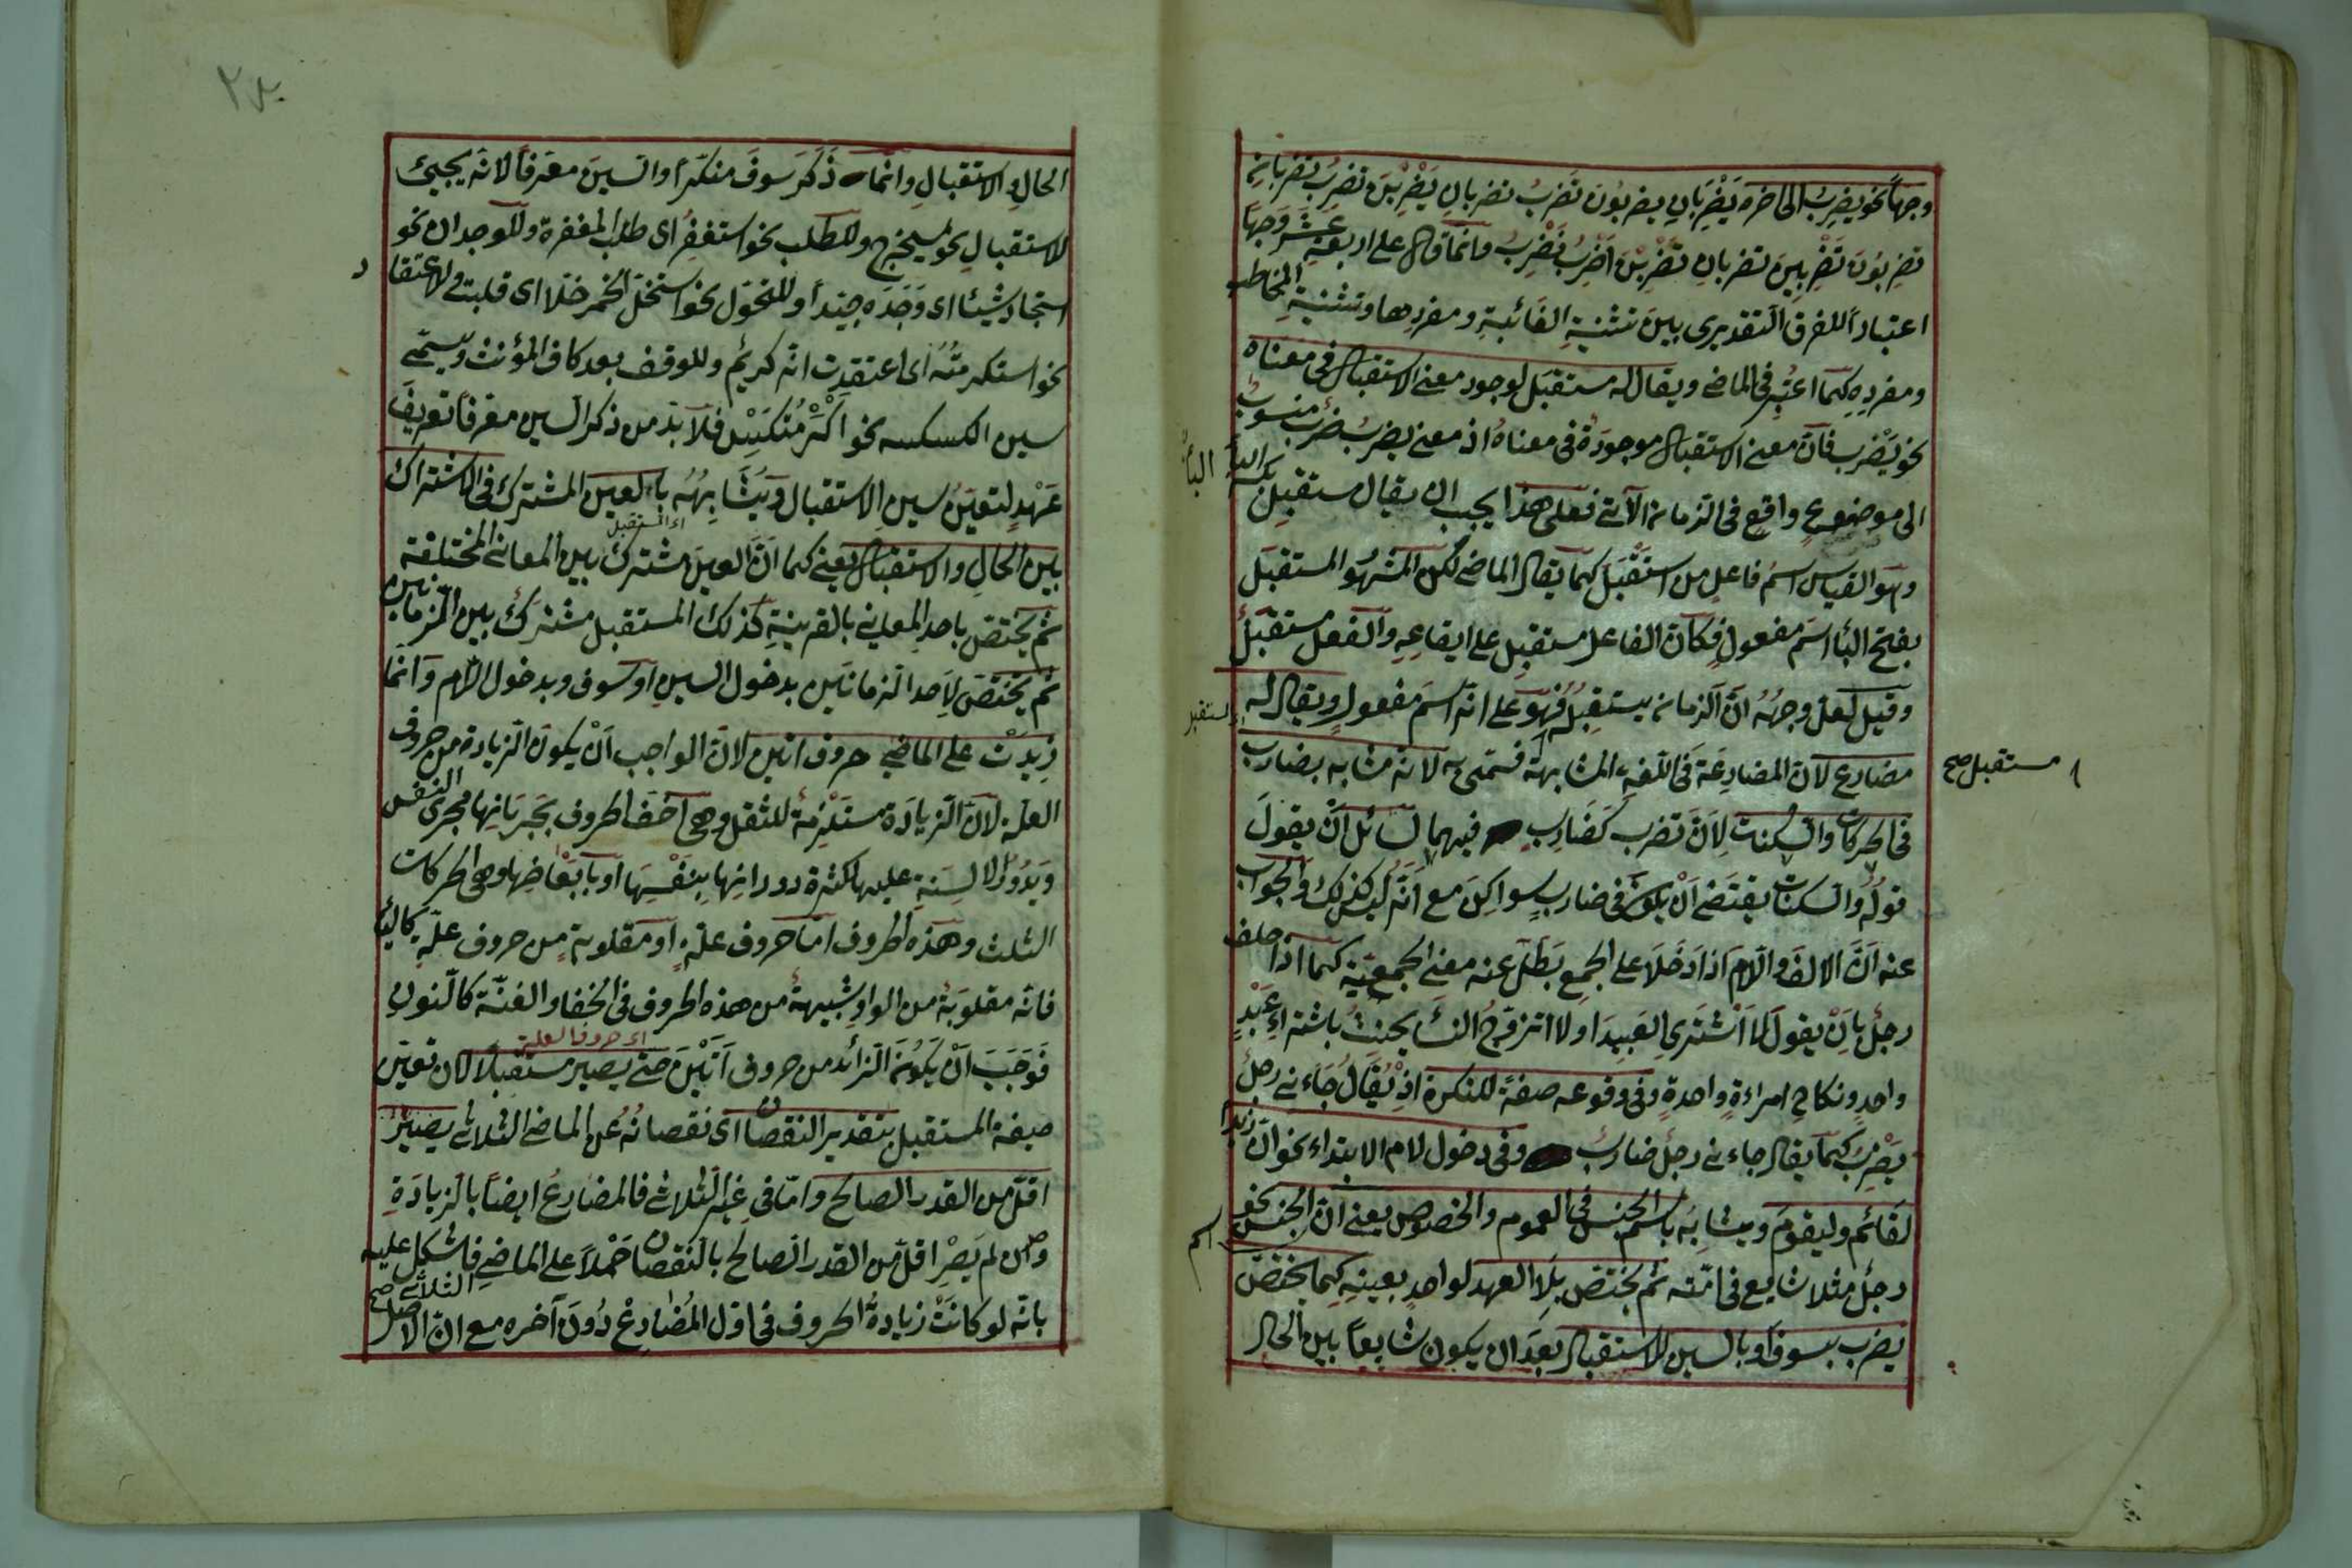 وجهاً نحو يضرب الى اخره يَضْرِبَانِ يضربُونَ تَضربُ تضربانِ يَضْرِبْنَ تضربُ تضربانِ
تضربُونَ تَضْرِبِينَ تضربانِ تَضْرِبْنَ اَضْرِبُ نَضْرِبُ وانّما قال على اربعة عَشَرَ وَجهاً
اعتباراً للفرق التقديرى بينَ تثنيةِ الغائبةِ ومفردِها وتثنيةِ المخاطب
ومفردِهِ كمَا اعتُبِرَ فى الماضى ويقال له مستقبَل لوجود معنى الاستقبال فى معناه
نحو يَضْرِب فانّ معنى الاستقبال موجودَةٌ فى معناهُ اذ معنى يضربُ ضَرْبٌ منسوبٌ
الى موضوعٍ واقعٍ فى الزمان الآتى فعلى هذا يجب ان يقال مستقبِل بكسر الباء
وهو القياس اسمُ فاعلٍ من استَقْبَلَ كما يقال الماضى لكن المشهُو المستقبَل
بفتح الباُ اسمَ مفعولٍ فكانّ الفاعل مستقبِل على ايقاعِهِ والفعل مستقبَلُ
وقيل لعلّ وجهُهُ انّ الزمان يستقبِلُهُ فهو على انّه اسمَ مفعولٍ ويقال له
مضارع لانّ المضارعَة فى اللغةِ المشابهة فسمّى به لانّه مشابه بضارب
مستقبل صح
فى الحركات والسكنات لِاَنّ تضرب كَضَارِبٍ فيهما لسائل اَنْ يقولَ
قولُهُ والسكنات يقتضى اَنْ يكون فى ضاربٍ سواكِنَ مع انّه ليس كذلك والجواب
عنه اَنّ الالفَ والّلامَ اذا دَخَلَا على الجمع بَطَلَ عنه معنى الجمعيّة كما اذا حلف
رجلٌ بِاَنْ يقول لا اَشْتَرِى العَبِيدَ او لا اتزوّجُ النسأَ يحنثُ باشتراءِ عَبْدٍ
واحدٍ ونكاحِ امراءةٍ واحدةٍ وفى وقوعه صفةً للنكرة اذْ يُقالُ جَاءنى رجلٌ
يَضْرِبُ كما يقال جاءنى رجلٌ ضاربٌ وفى دخول لام الابتداء نحو انّ زيداً
لقَائم وليقومُ ويشابِهُ باسم الجنسِ فى العمومِ والخصوصِ يعنى انّ الجنس نحو
رجلٌ مثلا شايع فى امّته ثم يختصّ بلا العهد لواحدٍ بعينِهِ كما يختصّ
يضرب بسوف اَو بالسين للاستقبال بعدَ ان يكون شايعاً بين الحالِ
الحالِ والاستقبالِ وانّما ذَكَرَ سوفَ منكّراً والسينَ معَرفاً لانّه يجيئُ
للاستقبالِ نحو سيخرج وللطلب نحو استغفِرُ اى طلب المغفرة وللوجدان نحو
استجَاد شيئًا اى وَجَدَه جيّداً وللتحوّل نحو استخلّ الخمر خلّا اى قلبت وللاعتقاد
نحو استكرمتُهُ اى اعتقدت انّه كريمٌ وللوقف بعد كاف المؤنث ويسمّى
سين الكسكسه نحو اكْرَمْتُكِسْ فلا بدّ من ذكر السين معرفاً تعريفَ
عَهْدٍ لتعيّن سينِ الاستقبال ويُشَابِهُهُ بالعين المشترك فى الاشتراك
اى المستقبل
بين الحالِ والاستقبال يعنى كما انّ العينَ مشتركٌ بين المعانى المختلفة
ثم يختصّ باحد المعانى بالقرينةِ كذلك المستقبل مشتركٌ بين الزمانين
ثم يختصّ لِاَحد الزمانَين بدخول السين او سوف وبدخول اللام وانّما
زِيدَتْ على الماضى حروف اتين لانّ الواجب اَنْ يكونَ الزيادة من حروف
العلّة لانّ الزيادَة مستلزِمةٌ للثقل وهى اخفّ الحروف بجَرَيَانِها مجرى النفس
وَيَدُورُ الالسِنَةِ عليها لكثرة دورانِها بِنَفْسِهَا او بابْعَاضِها وهى الحركات
الثلث وهذه الحروف امّا حروف علّةٍ او مقلوبة من حروف علّةٍ كالتاء
فانّه مقلوبَةٌ من الواوِ شبيهةٌ من هذه الحروف فى الخفا والغنّة كالنون
اى حروف العلة
فَوَجَبَ اَنْ يَكُونَ الزائد من حروف اَتَيْنَ حتى يصير مستقبلاً لانّ تعيّن
صيغة المستقبل بتقدير النقصان اى نقصانُهُ عن الماضى الثلاثى يصيرُ
اقلّ من القدر الصالح وامّا فى غير الثلاثى فالمضارعُ ايضاً بالزيادَةِ
وان لم يَصْرِ اقلّ من القدر الصالح بالنقصان حَمْلاً على الماضى فاشكل عليه
الثلاثى صح
بانّه لو كانَتْ زيادةُ الحروف فى اوّل المُضارِعْ دُونَ آخره مع انّ الاصل